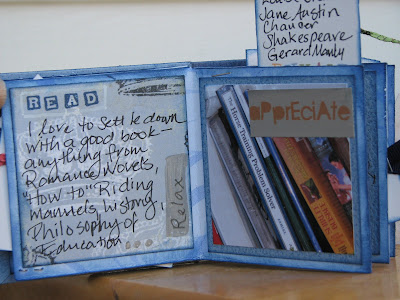 Jane, Austin
Chaucer
Shakespeare
Gerard Manly
READ
I love to settle down
with a good book—
anything from
Romance Novels,
"How to" Riding
manuels, history,
Philosophy of
Education
Relax
aPprEciAte
The Horse Training Problem Solver